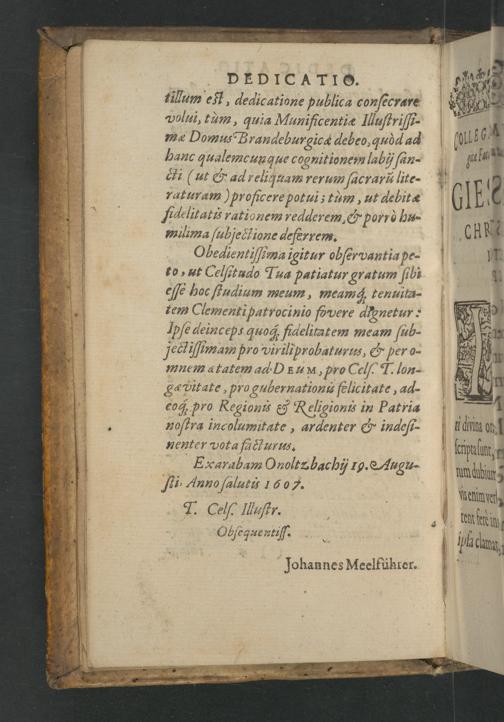 DEDICATIO.
tillum est, dedicatione publica consecrare
volui, tùm, quia Munificentiæ Illustrissi-
mæ Domus Brandeburgicæ debeo, quòd ad
hanc qualemcunque cognitionem labij san-
cti (ut & ad reliquam rerum sacrarũ lite-
raturam) proficere potui; tùm, ut debitæ
fidelitatis rationem redderem, & porrò hu-
milima subjectione deferrem.
Obedientissima igitur observantia pe-
to, ut Celsitudo Tua patiatur gratum sibi
esse hoc studium meum, meamq́; tenuita-
tem Clementi patrocinio fovere dignetur:
Ipse deinceps quoq́; fidelitatem meam sub-
jectissimam pro virili probaturus, & per o-
mnem ætatem ad DEUM, pro Cels. T. lon-
gævitate, pro gubernationis felicitate, ad-
eoq́; pro Regionis & Religionis in Patria
nostra incolumitate, ardenter & indesi-
nenter vota facturus.
Exarabam Onoltzbachij 19. Augu-
sti. Anno salutis 1607.
T. Cels. Illustr.
Obsequentiss.
Johannes Meelführer.
COLLEGA
GIESS
CHRI
ei divina
scripta sunt,
rum dubium
vis enim
tent ferè
ipsa clamat,